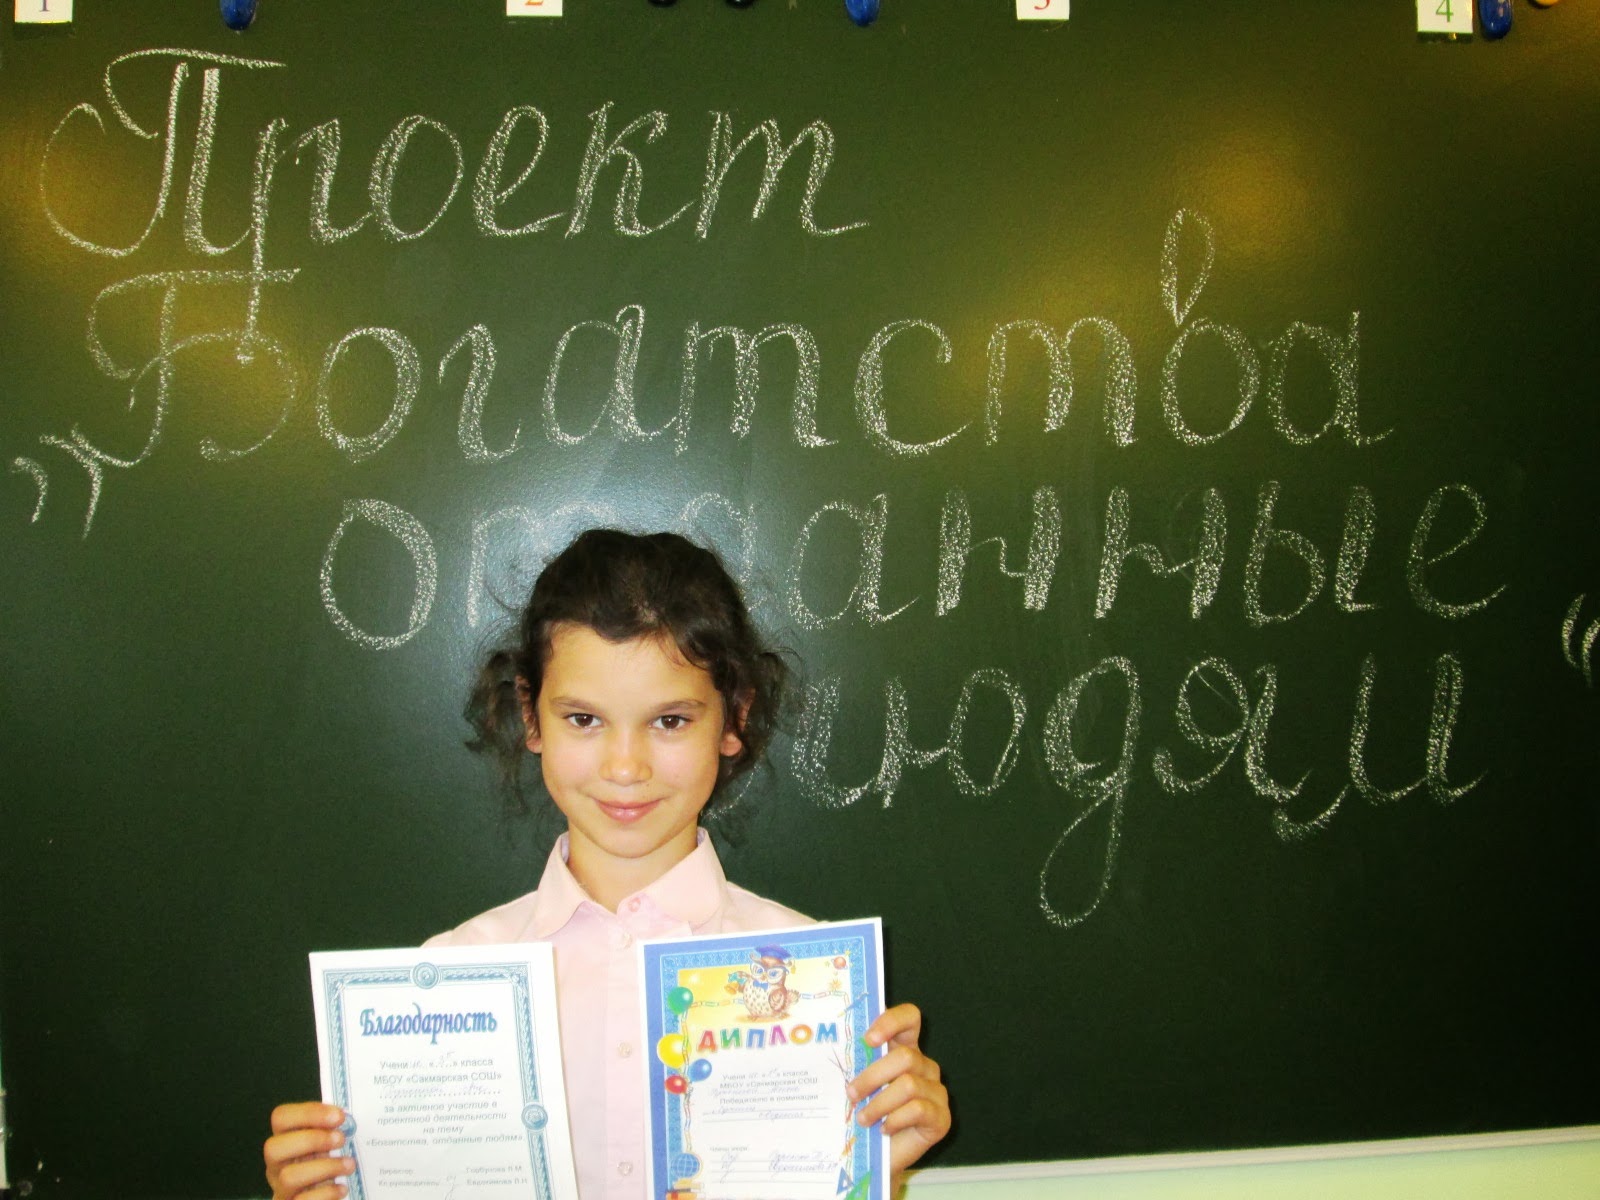 1 2 3 4
Проект
„Богатства
отданные
людям“
Благодарность
Учени «1» класса
МБОУ «Сакмарская СОШ»
за активное участие в
проектной деятельности
на тему
«Богатства, отданные людям»
Директор Горбунова Л.М.
Кл.руководитель Евдокимова Л.Н.
ДИПЛОМ
Учени класса
МБОУ «Сакмарская СОШ
Победителю в номинации
Члены жюри